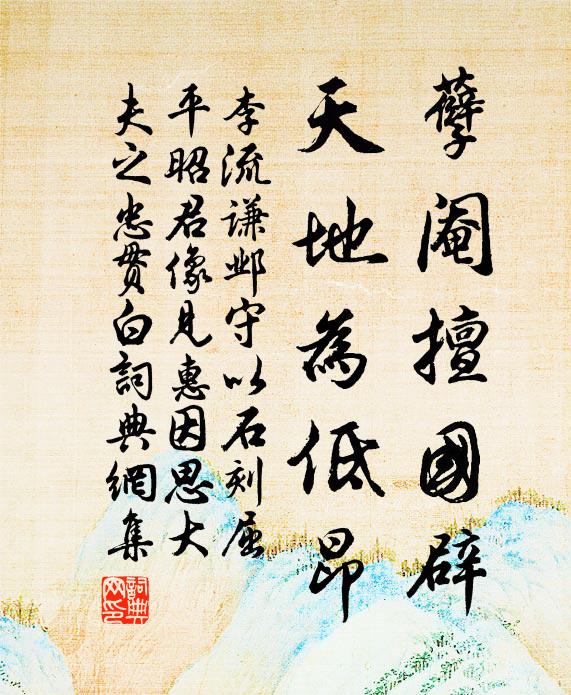 孽阉擅國辟
天地為低昂
李流謙邺守以石刻屈
平昭君像見惠因思大
夫之忠貫白詞典網集
詞典
网印